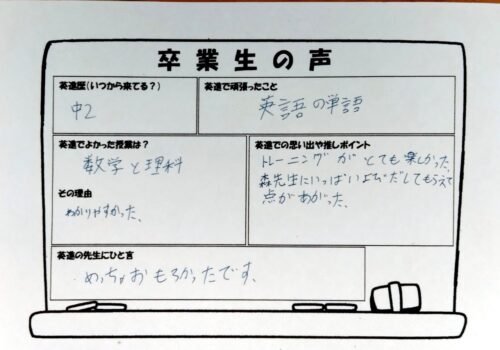 卒業生の声
英進歴(いつから来てる?)
中2
英進で頑張ったこと
英語の単語
英進でよかった授業は?
数学と理科
その理由
わかりやすかった、
英進での思い出や推しポイント
トレーニングがとても楽しかった、
森先生にいっぱいよびだしてもらえて
点があがった、
英進の先生にひと言
めっちゃおもろかったです、